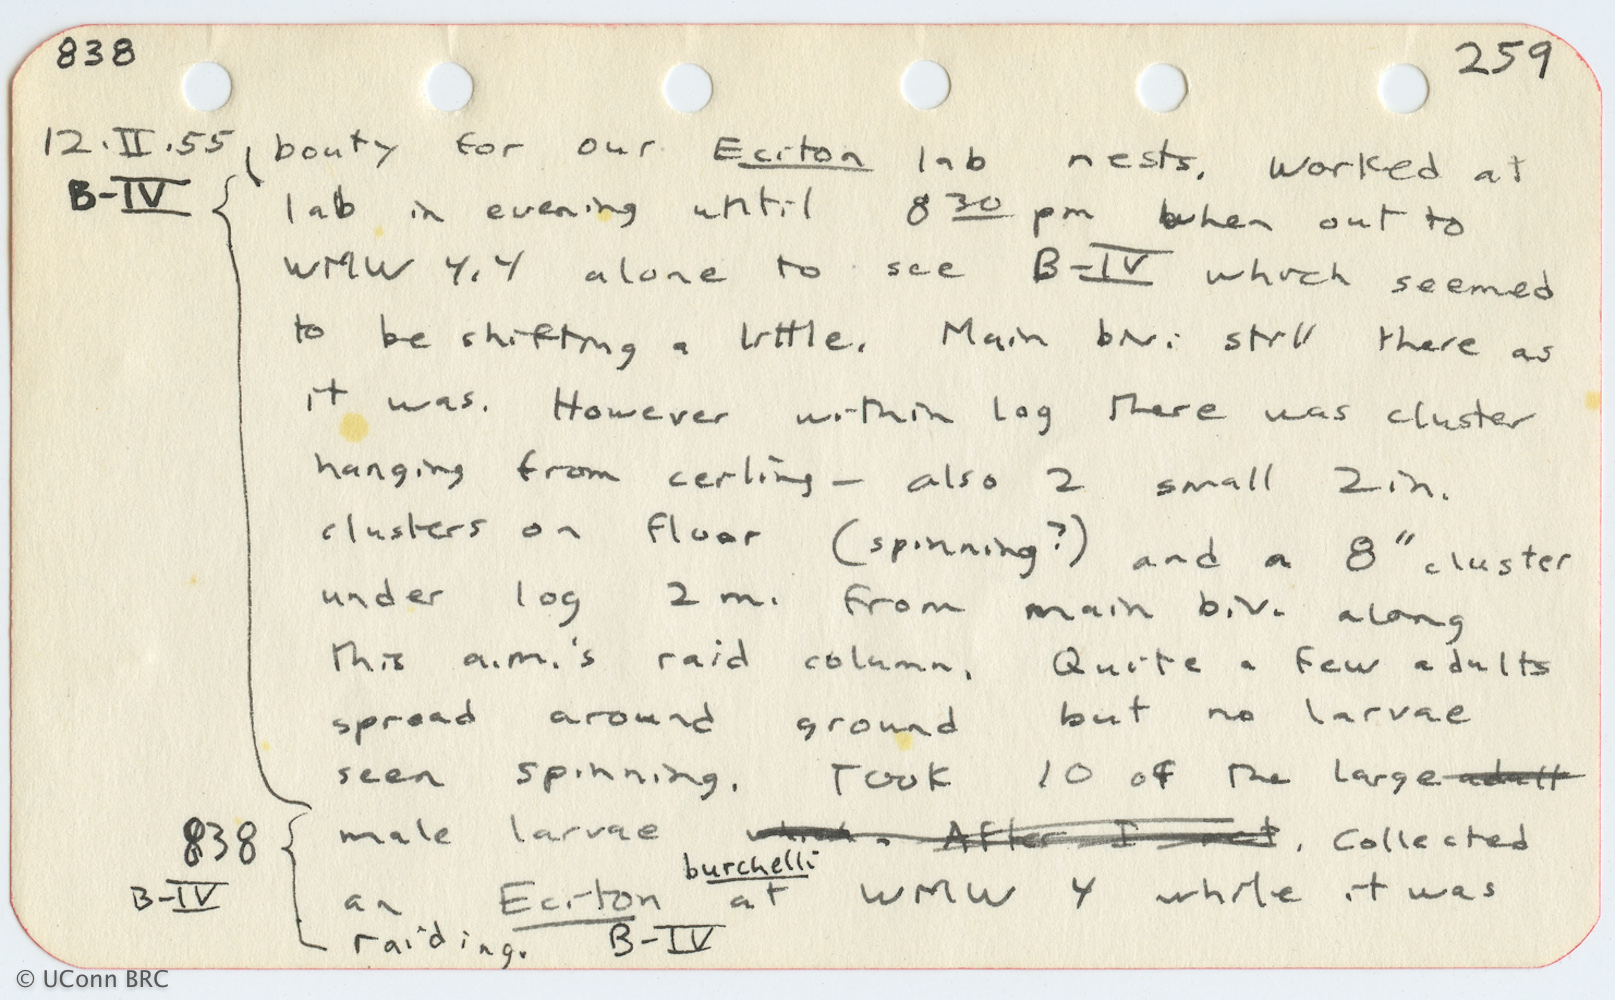 838 259
12.II.55 bouty for our Eciton lab nests. Worked at
B-IV lab in evening until 8 30 pm when out to
WMW 4.4 alone to see B-IV which seemed
to be shifting a little. Main biv. still there as
it was. However within log there was cluster
hanging from ceiling - also 2 small 2 in.
clusters on floor (spinning?) and a 8" cluster
under log 2 m. from main biv. along
this a.m.'s raid column. Quite a few adults
spread around ground but no larvae
seen spinning. Took 10 of the large adult
838 male larvae which. After I . Collected
burchelli
B-IV an Eciton at WMW 4 while it was
raiding. B-IV
© UConn BRC